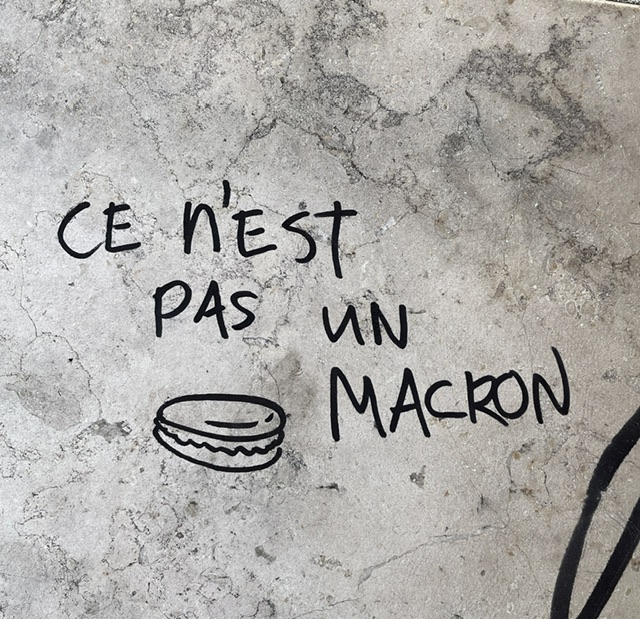 CE n'EST
PAS UN
MACRON